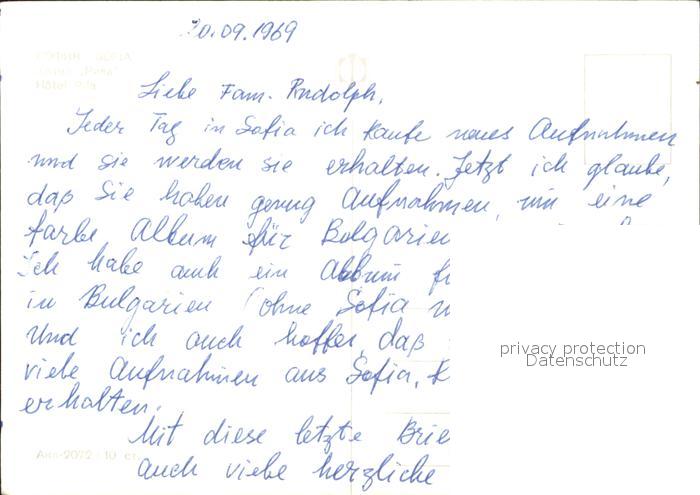 20.09.1969
СОФИЯ - SOFIA
Hôtel Rila
Liebe Fam. Rudolph,
Jeder Tag in Sofia ich kaufe neues Aufnahmen
und sie werden sie erhalten. Jetzt ich glaube,
daß Sie haben genug Aufnahmen, um eine
farbe Album für Bulgarien
Ich habe auch ein Album
in Bulgarien (ohne Sofia
Und ich auch hoffe, daß
viele Aufnahmen aus Sofia,
erhalten.
Mit diese letzte
auch viele herzliche
Акп-2072 · 10 ст.
privacy protection
Datenschutz